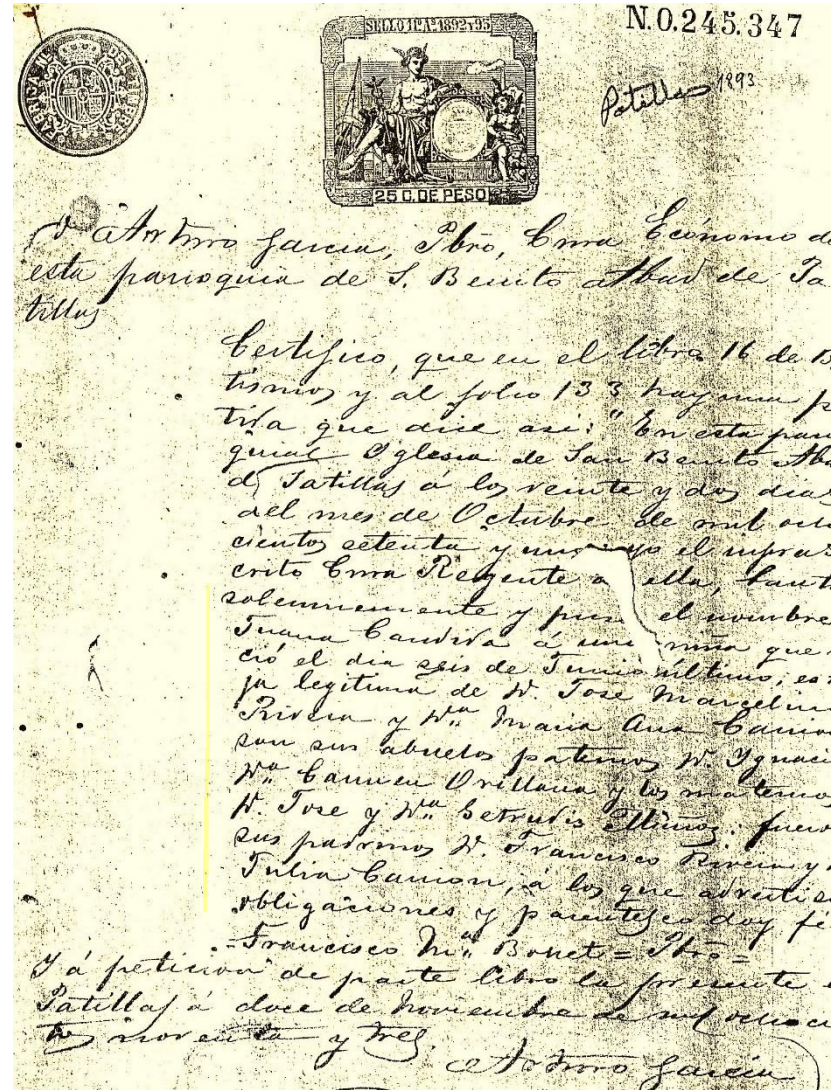 SELLO 11º Aº 1892 Y 93
N.0.245.347
FABRICA NL. DEL TIMBRE
Patillas 1893
25 C. DE PESO
D. Arturo Garcia, Pbro, Cura Ecónomo de
esta parroquia de S. Benito Abad de Pa
tillas
Certifico, que en el libro 16 de B
tismos y al folio 133 hay una p
tida que dice asi: "En esta parr
quial Yglesia de San Benito Aba
de Patillas á los veinte y dos dias
del mes de Octubre de mil ocho
cientos setenta y uno yo el infras
crito Cura Regente de ella, baut
solemnemente y puse el nombre
Juana Candida á una niña que
ció el dia seis de Junio último; es
ja legitima de D. José Marcelin
Rivera y Dª Maria Ana Camo
son sus abuelos paternos D. Ygnaci
Dª Carmen Orillana y los maternos
D. Jose y Dª Getrudis Muñoz: fuero
sus padrinos D. Francisco Rivera y
Julia Camon, á los que adverti s
obligaciones y parentesco doy fé
=Francisco Mª Bonet = Pbro=
Y á peticion de parte libro la presente e
Patillas á doce de Noviembre de mil ochoci
tos noventa y tres.
Arturo Garcia